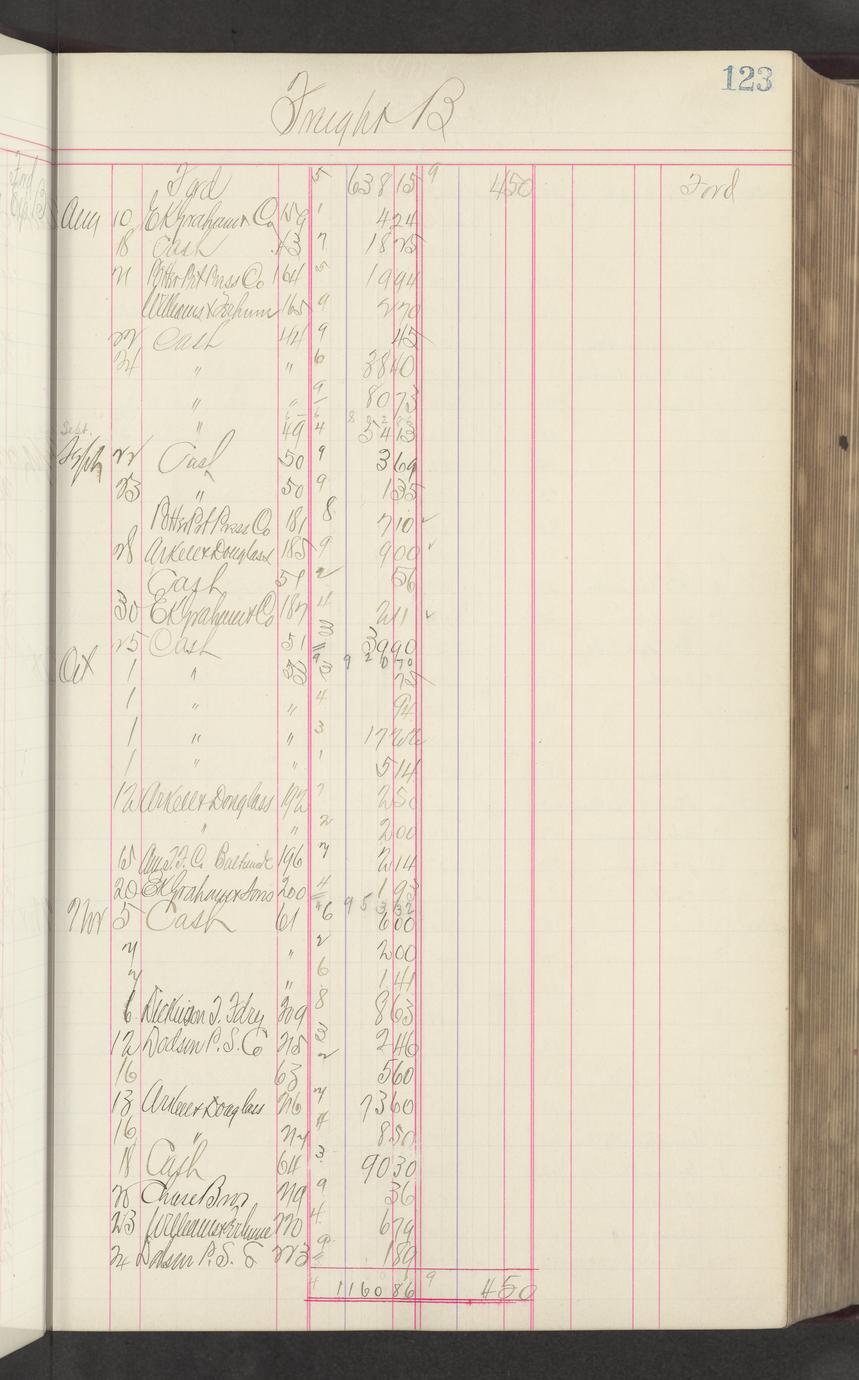 123
Freight B
Ford 5 638 15 9 4 50 Ford
Aug 10 E K Graham & Co 159 1 4 24
18 Cash 43 7 18 25
21 Potter Prt Press Co 164 5 19 94
Williams & 165 9 2 70
22 Cash 44 9 45
24 " " 6 38 40
" " 9 80 73
" 49 4 54 13
Sept.
Sept 22 Cash 50 9 3 69
23 " 50 9 1 35
Potter Prt Press Co 181 8 7 10 ✓
28 Arkell & Douglass 185 9 9 00 ✓
Cash 51 2 56
30 E K Graham & Co 187 4 2 11 ✓
25 Cash 51 3 39 90
9 920 70
Oct 1 " 53 3 75
1 " 4 94
1 " " 3 17 22
1 " " 1 5 14
12 Arkell & Douglass 192 7 2 50
" " 2 2 00
15 Balto 196 7 2 14
20 E K Graham & Sons 200 4 1 93
4 953 32
Nov 5 Cash 61 6 6 00
7 " 2 2 00
7 " 6 1 41
6 Dickinson T. Fdry 209 8 8 63
12 Dodson P. S. Co 215 3 2 46
16 63 2 5 60
13 Arkell & Douglass 216 7 73 60
16 " 217 4 8 50
18 Cash 64 3 90 30
20 Chase Bros 219 9 36
23 Williams & 220 4 6 79
24 Dodson P. S. Co 223 9 1 89
4 1160 86 9 4 50